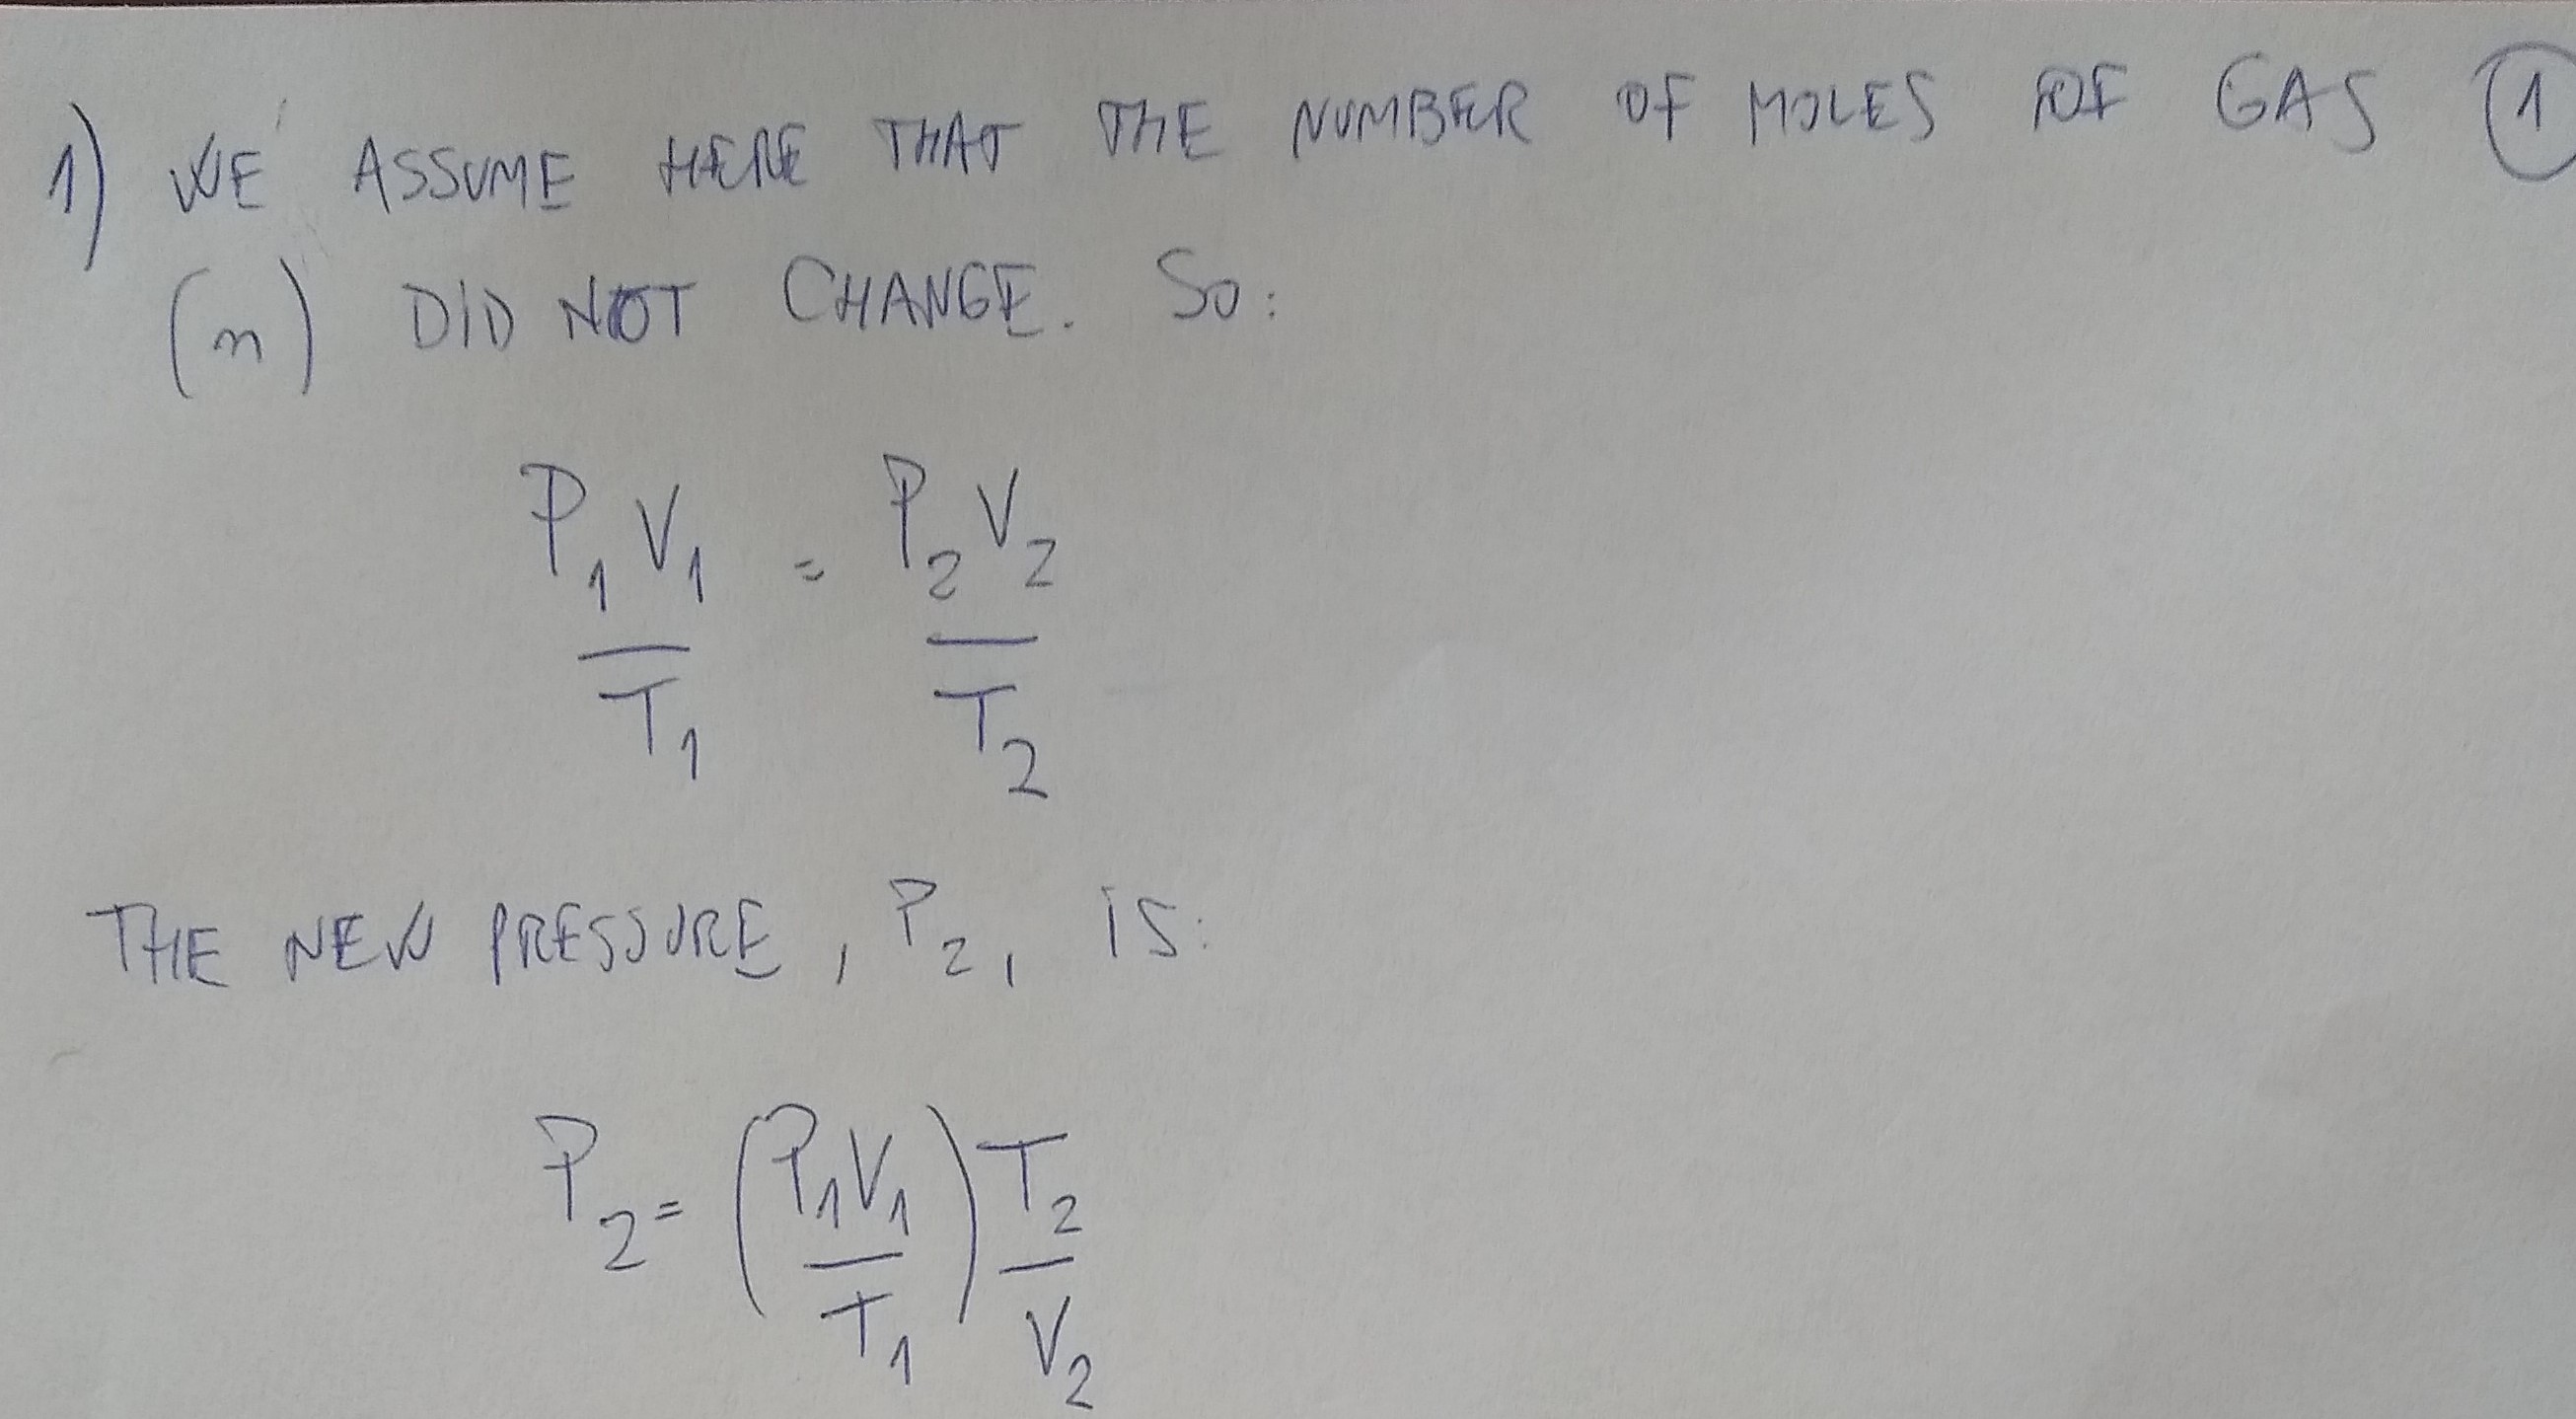 1) WE ASSUME HERE THAT THE NUMBER OF MOLES OF GAS ①
(n) DID NOT CHANGE. SO:
P₁V₁ = P₂V₂
T₁ T₂
THE NEW PRESSURE, P₂, IS:
P₂ = (P₁V₁/T₁) T₂/V₂